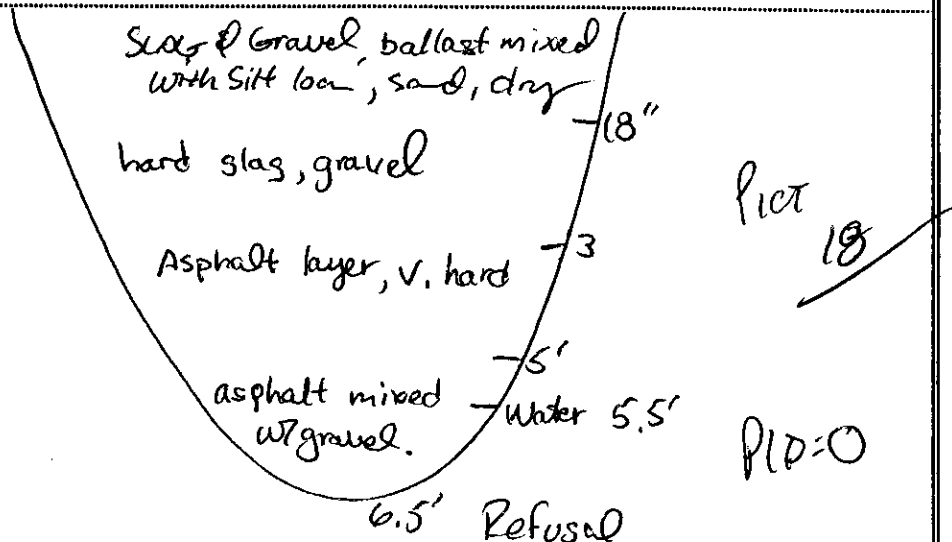 Slag & Gravel, ballast mixed
with Silt loam, sand, dry
18"
hard slag, gravel
Pict
18
3
Asphalt layer, v. hard
5'
asphalt mixed
w/gravel.
Water 5.5'
PID=0
6.5' Refusal